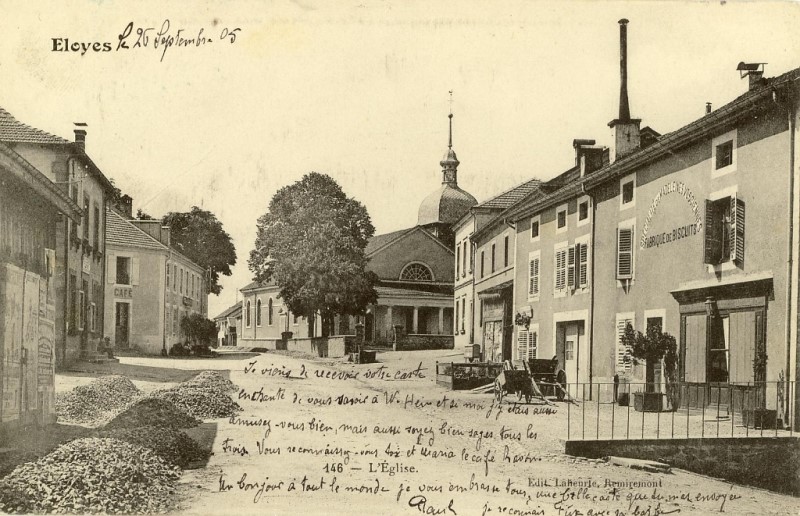 Eloyes le 26 Septembre 05
CAFÉ
FABRIQUE DE BISCUITS
Je viens de recevoir votre carte
enchanté de vous savoir à et si moi j'y étais aussi
amusez-vous bien, mais aussi soyez bien sages tous les
trois. Vous reconnaissez-vous et Maria le café
146 - L'Église.
Edit. Laheurte, Remiremont
Un bonjour à tout le monde je vous embrasse tous, une belle carte que tu m'as envoyée
je reconnais avec sa barbe